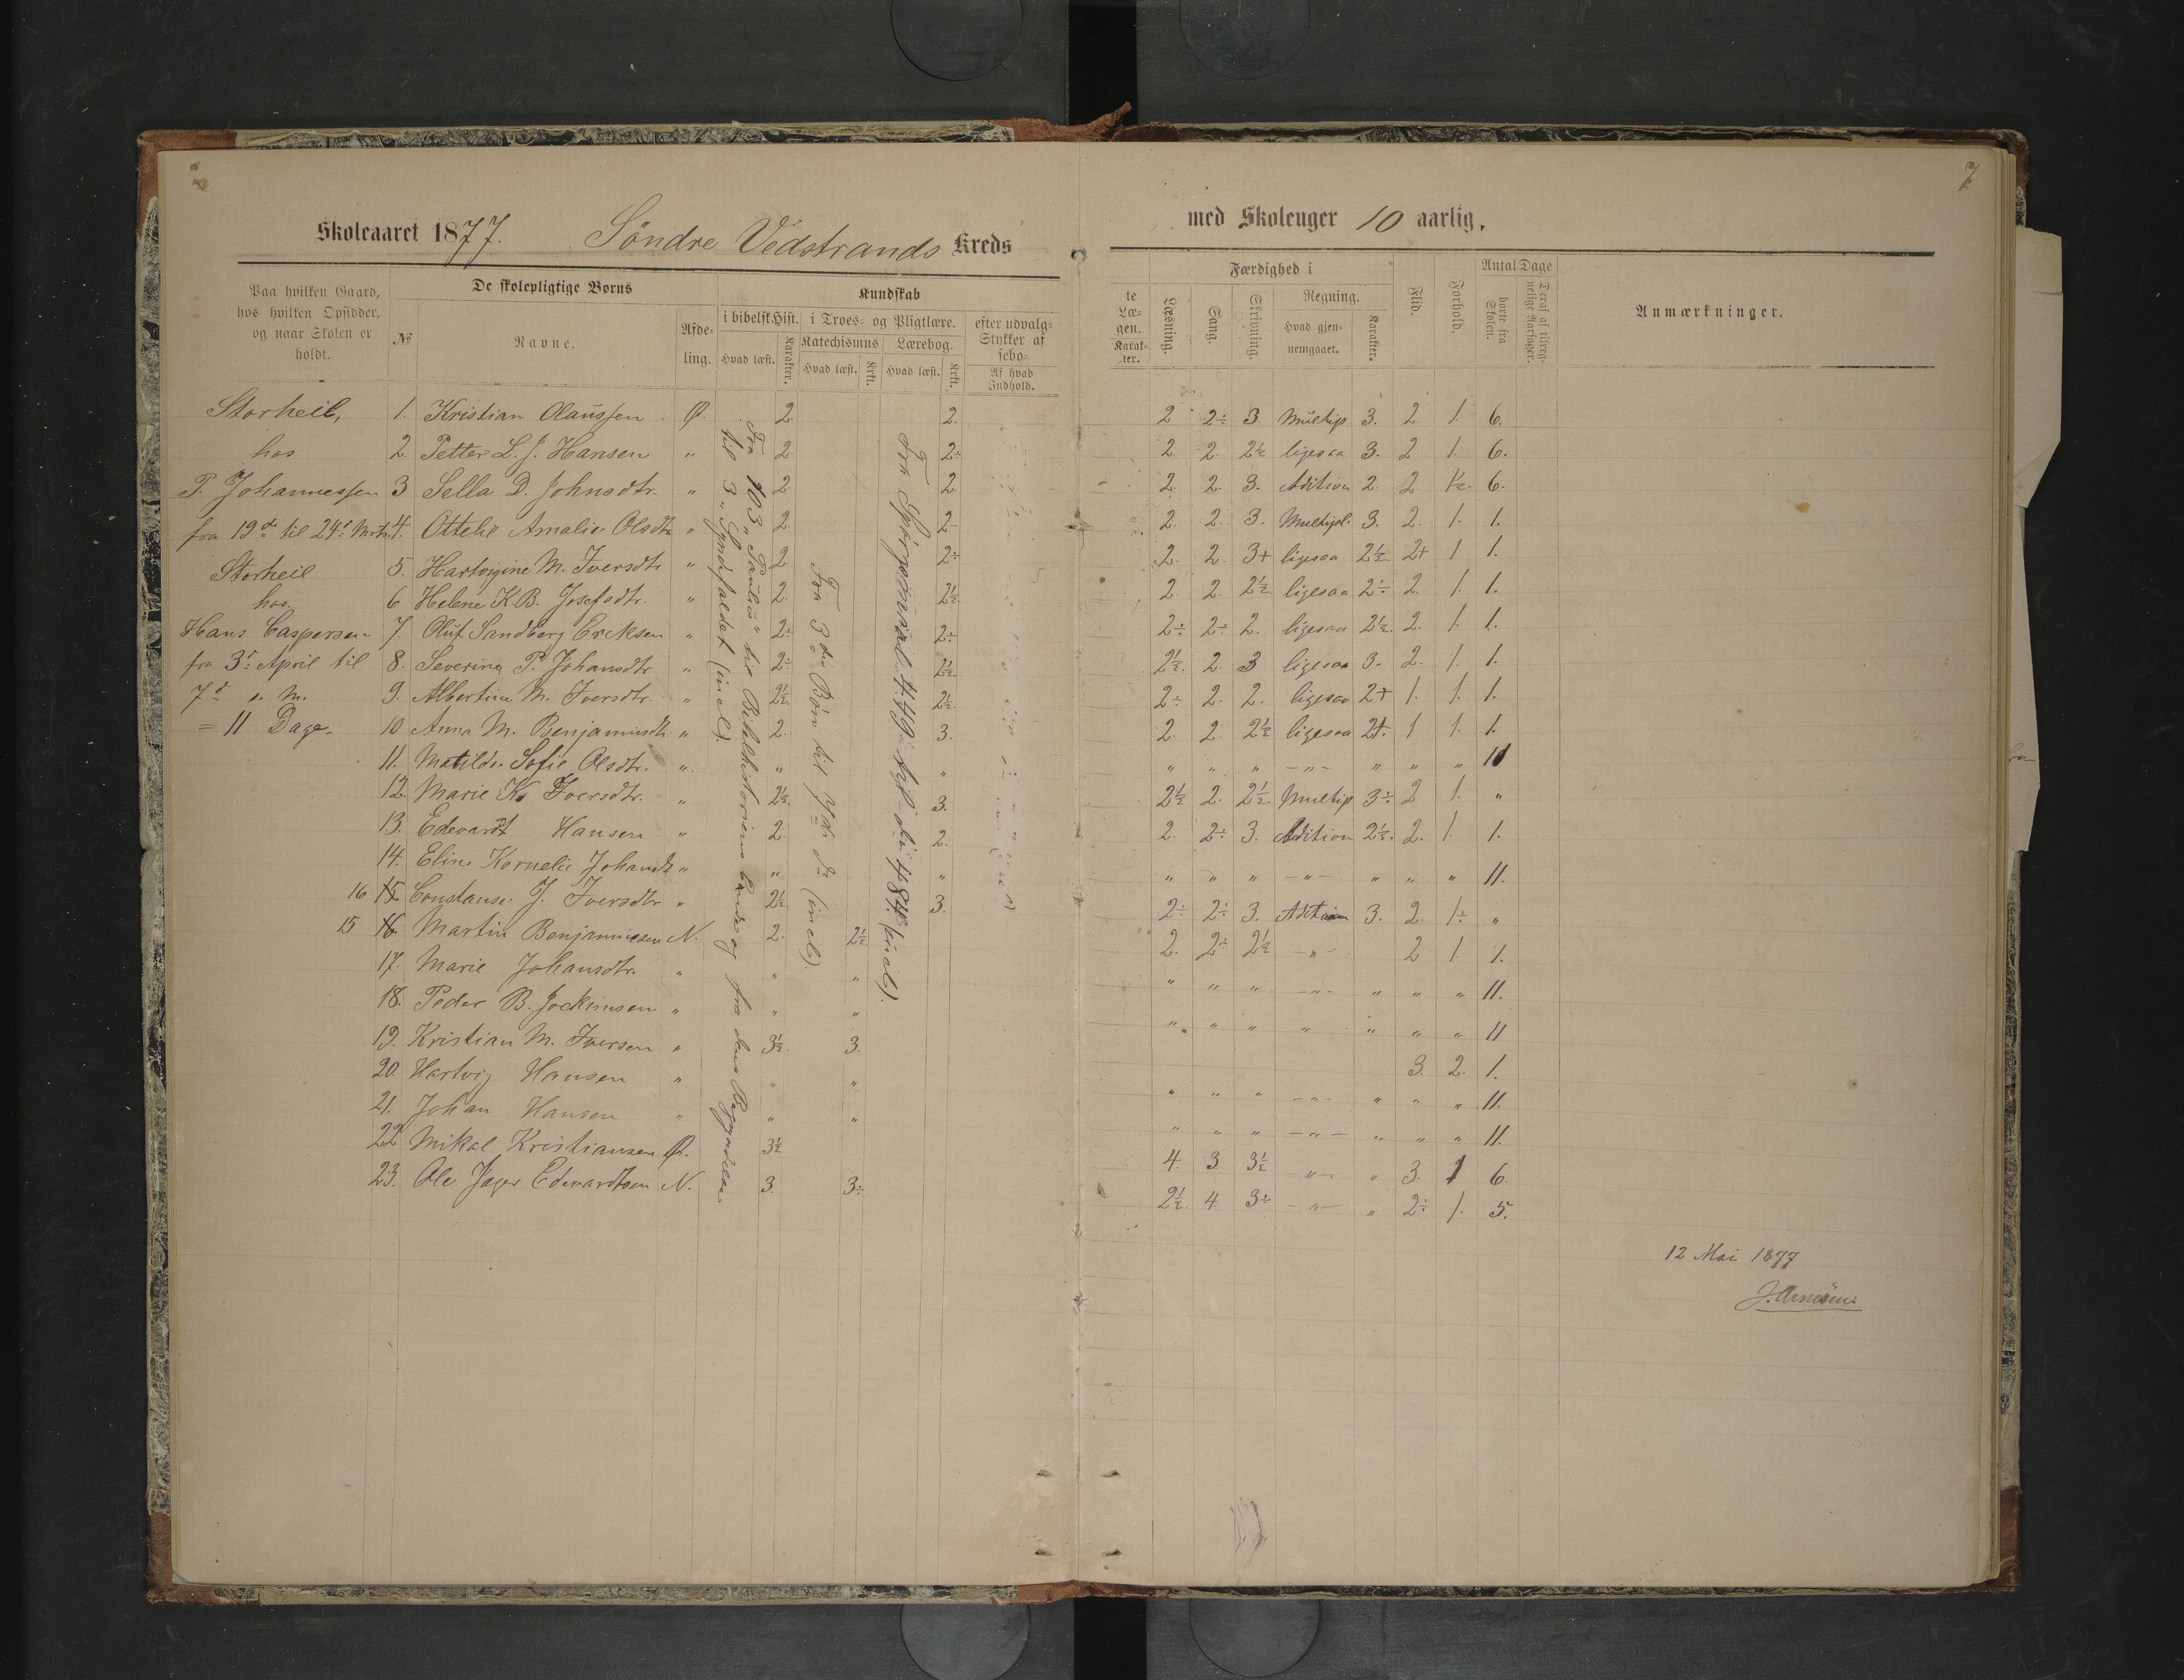 7
Skoleaaret 1877. Söndre Vedstrands Kreds med Skoleuger 10 aarlig.
Paa hvilken Gaard, hos hvilken Opsidder, og naar Skolen er holdt.
De skolepligtige Børns
№ Navne. Afdeling.
Kundskab
i bibelsk Hist. i Troes- og Pligtlære. efter udvalg-
Katechismus Lærebog. Stykker af
Hvad læst. Karakter. Hvad læst. Krkt. Hvad læst. Krkt. Af hvad Indhold.
te Læ- gen. Karak- ter.
Færdighed i
Læsning. Sang. Skrivning. Regning. Hvad gjen- nemgaaet. Karakter.
Flid. Forhold.
Antal Dage
borte fra Skolen. Deraf af tilreg- nelige Aarsager.
Anmærkninger.
Storheil, 1. Kristian Olaussen Ø. 2. 2. 2 2÷ 3. Multip 3. 2. 1. 6.
hos 2. Petter L. J. Hansen " 2. 2÷ 2. 2. 2½ ligesaa 3. 2 1. 6.
P. Johannessen 3 Sella D. Johnsdtr. " 2. 2. 2. 2. 3. Adition 2. 2 1½. 6.
fra 19de til 24de Mrts. 4. Ottelie Amalie Olsdtr " 2. 2- 2. 2. 3. Multipl. 3. 2. 1. 1.
Storheil 5. Hartvigine M. Iversdtr " 2. 2÷ 2. 2. 3+ ligesaa 2½. 2+ 1 1.
hos 6 Helene K.B. Josefsdtr. " 2. 2½. 2. 2. 2½ ligesaa 2÷ 2. 1. 1.
Hans Caspersen 7. Oluf Sandberg Eriksen " 2÷ 2÷ 2÷ 2÷ 2. ligesaa 2½. 2. 1. 1.
fra 3de April til 8. Severine P. Johansdtr " 2÷ 2½. 2½. 2. 3 ligesaa 3. 2. 1. 1.
7d s. M. 9. Albertine M. Iversdtr. " 2½. 2½. 2÷ 2. 2. ligesaa 2+ 1. 1. 1.
= 11 Dage. 10 Anna M. Benjaminsdtr " 2. 3. 2. 2. 2½ ligesaa 2+. 1 1. 1.
11. Matilde Sofie Olsdtr. " " " " " " -"- " " " 11
12. Marie K. Iversdtr. " 2½. 3. 2½ 2. 2½. Multip 3÷ 2 1. "
13. Edevardt Hansen " 2. 2. 2. 2÷ 3. Adition 2½. 2. 1. 1.
14. Eline Kornelie Johansdtr " " " " " " -"- " " " 11.
16 15 Constanse J. Iversdtr " 2½. 3. 2÷ 2÷ 3. Adition 3. 2. 1÷ "
15 16. Martin Benjaminsen N. 2. 2½. 2. 2÷ 2½ -"- 2 1. 1.
17. Marie Johansdtr. " " " " " " -"- " " " 11.
18. Peder B. Jockimsen " " " " " " " " " " 11
19. Kristian M. Iversen " 3½. 3. 3. 2. 1.
20. Hartvig Hansen " " " " " " -"- " " " 11.
21. Johan Hansen " " " " " " -"- " " " 11.
22 Mikal Kristiansen Ø. 3½ 4. 3 3½ -"- " 3. 1 6.
23. Ole Jager Edevardtsen N. 3. 3÷ 2½. 4. 3÷ -"- " 2÷ 1. 5.
Fra 103 "Paulus" til Bibelhistoriens Ende og fra dens Begyndelse
til 3 "Syndefaldet (incl).
Fra 3die Bøn til 7de do (incl).
Fra Spørgsmaal 449 til do 484 (incl).
12 Mai 1877